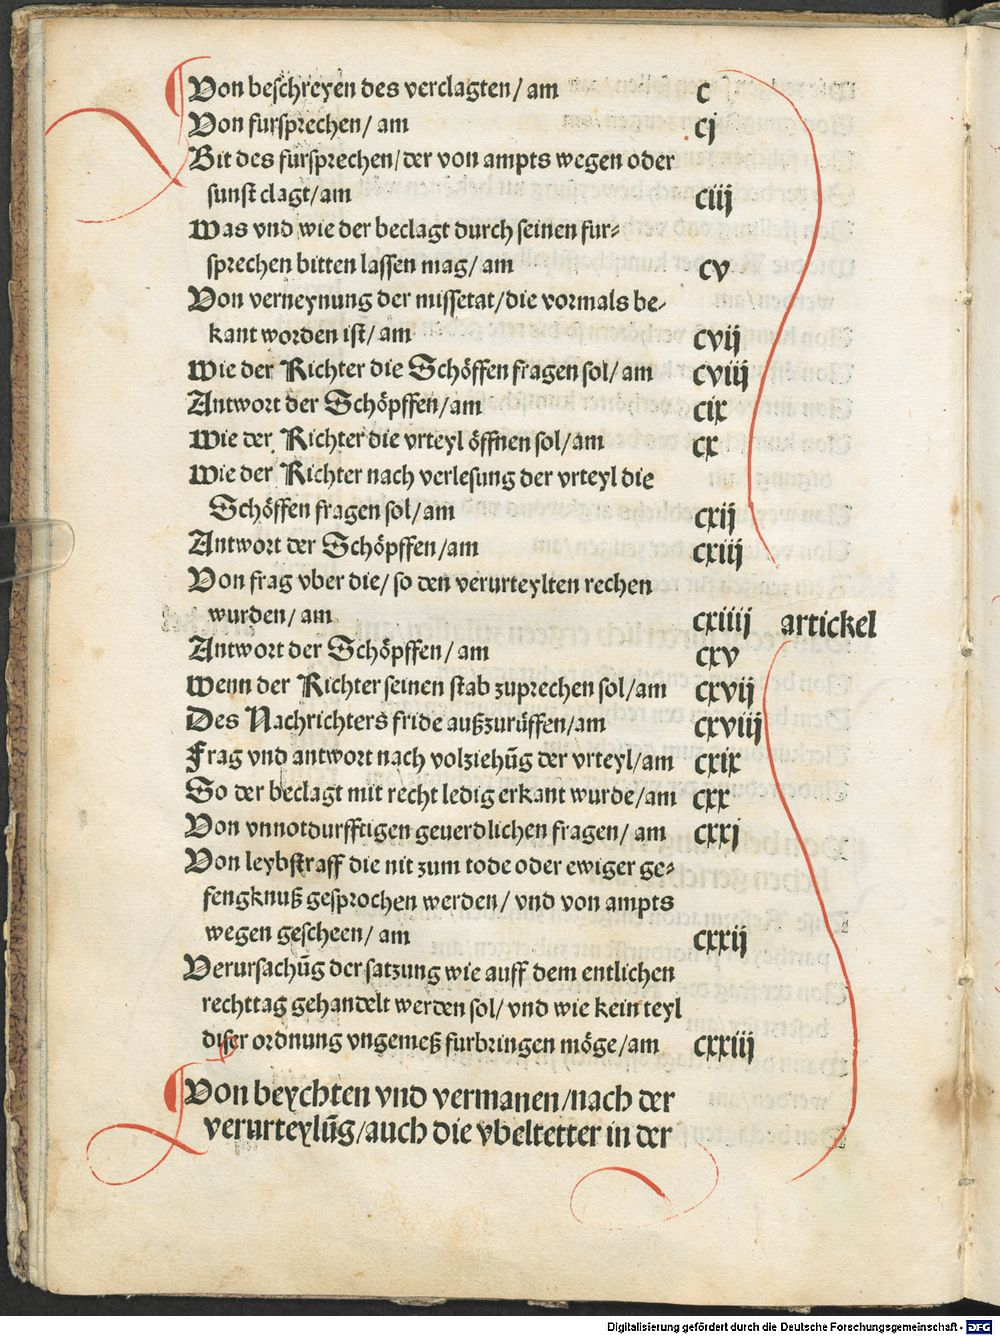 Von beschreyen des verclagten/ am c
Von fursprechen/ am cj
Bit des fursprechen/der von ampts wegen oder
sunst clagt/am ciij
Was vnd wie der beclagt durch seinen fur⸗
sprechen bitten lassen mag/ am cv
Von verneynung der missetat/die vormals be⸗
kant worden ist/ am cvij
Wie der Richter die Schöffen fragen sol/ am cviij
Antwort der Schöpffen/am cix
Wie der Richter die vrteyl öffnen sol/am cx
Wie der Richter nach verlesung der vrteyl die
Schöffen fragen sol/am cxij
Antwort der Schöpffen/am cxiij
Von frag vber die/ so den verurteylten rechen
wurden/ am cxiiij artickel
Antwort der Schöpffen/ am cxv
Wenn der Richter seinen stab zuprechen sol/am cxvij
Des Nachrichters fride außzurüffen/am cxviij
Frag vnd antwort nach volziehūg der vrteyl/am cxix
So der beclagt mit recht ledig erkant wurde/am cxx
Von vnnotdurfftigen geuerdlichen fragen/ am cxxj
Von leybstraff die nit zum tode oder ewiger ge⸗
fengknuß gesprochen werden/ vnd von ampts
wegen gescheen/ am cxxij
Verursachūg der satzung wie auff dem entlichen
rechttag gehandelt werden sol/ vnd wie kein teyl
diser ordnung vngemeß furbringen möge/am cxxiij
Von beychten vnd vermanen/nach der
verurteylūg/auch die vbeltetter in der
Digitalisierung gefördert durch die Deutsche Forschungsgemeinschaft - DFG